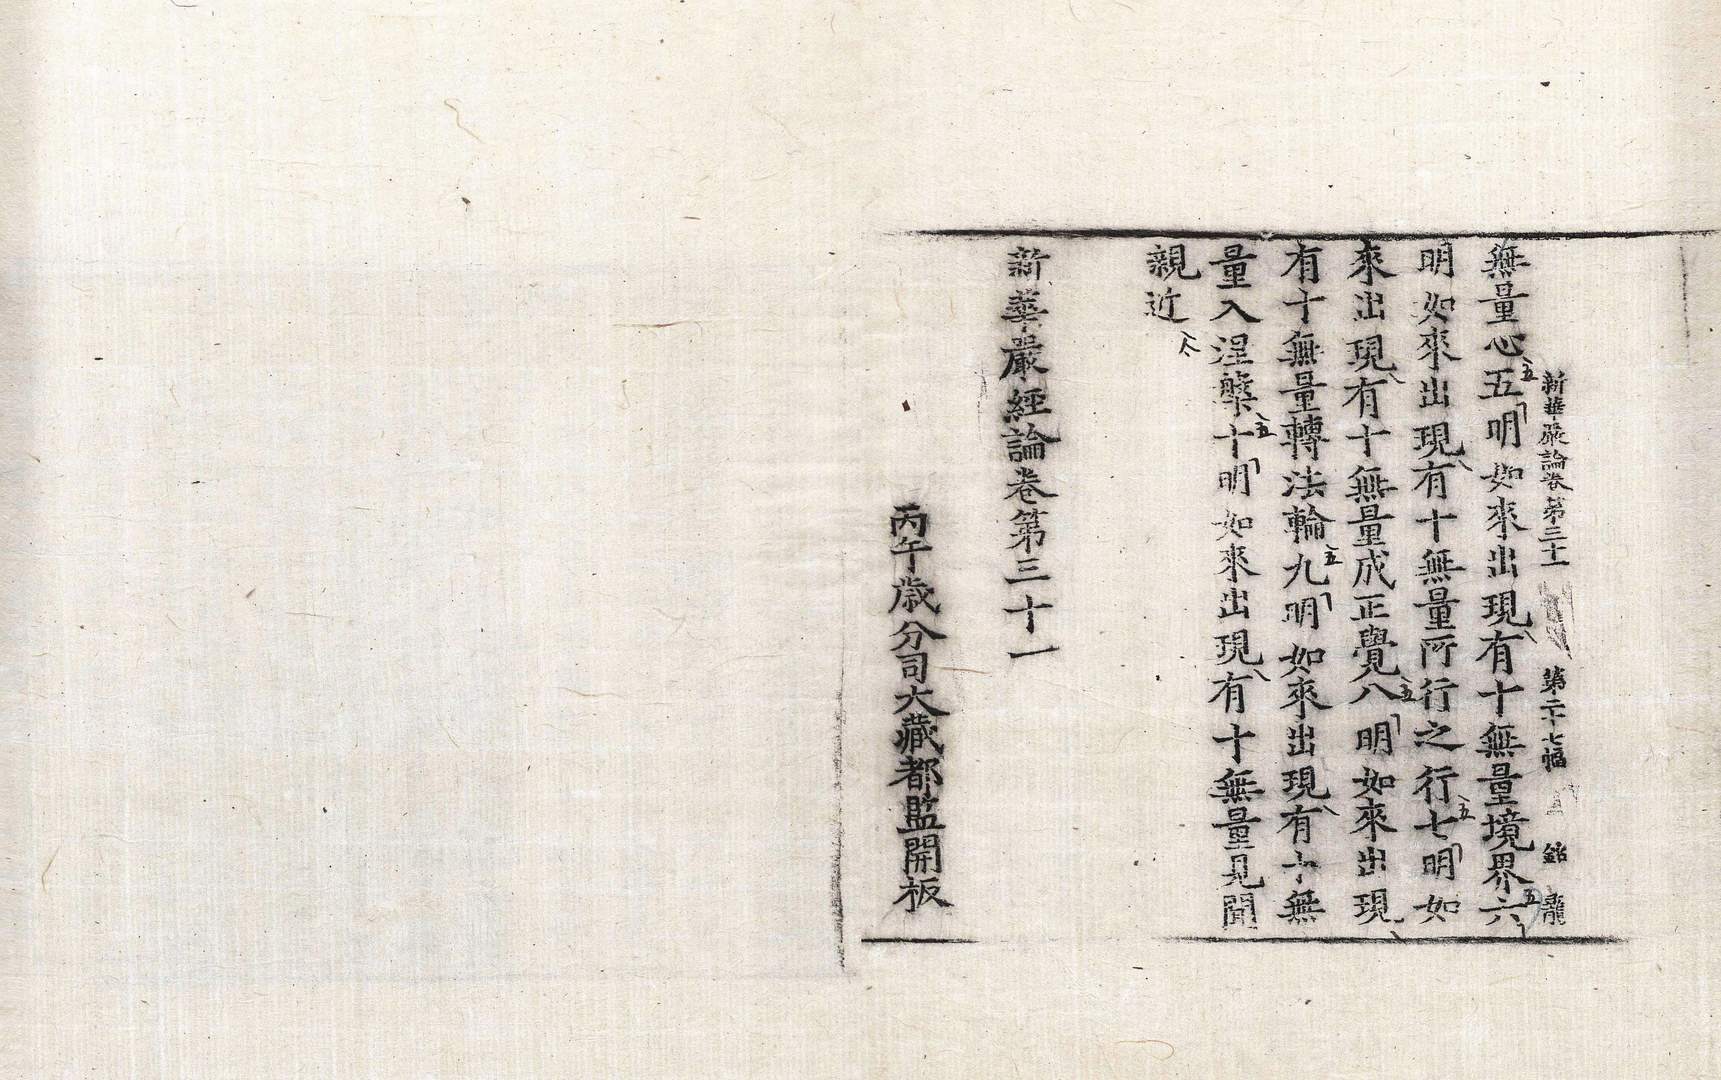 新華嚴論卷第三十一 第二十七幅 銘 龍
無量心五明如來出現有十無量境界六
明如來出現有十無量所行之行七明如
來出現有十無量成正覺八明如來出現
有十無量轉法輪九明如來出現有十無
量入涅槃十明如來出現有十無量見聞
親近
新華嚴經論卷第三十一
丙午歲分司大藏都監開板